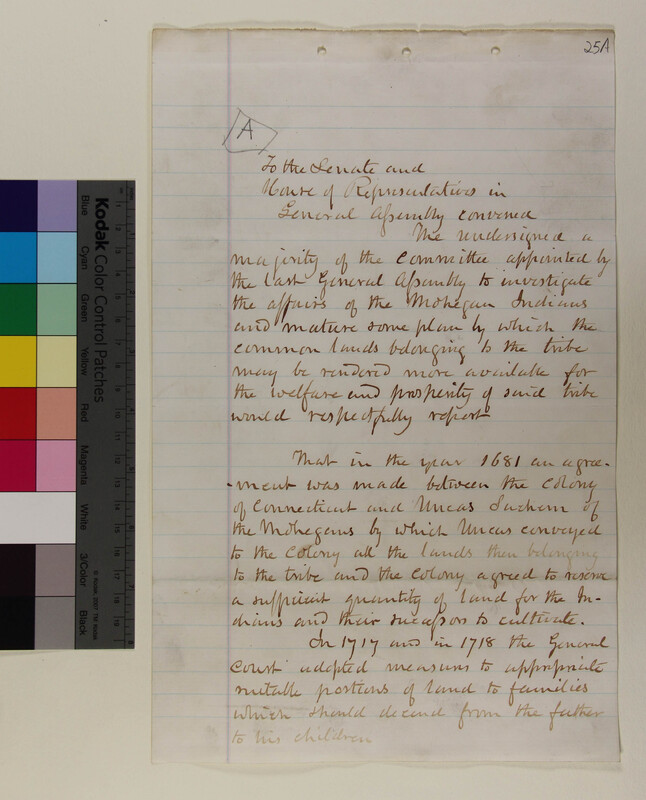 25A
A
To the Senate and
House of Representatives in
General Assembly convened
The undersigned a
majority of the committee appointed by
the last General Assembly to investigate
the affairs of the Mohegan Indians
and mature some plan by which the
common lands belonging to the tribe
may be rendered more available for
the welfare and prosperity of said tribe
would respectfully report
That in the year 1681 an agree-
-ment was made between the Colony
of Connecticut and Uncas Sachem of
the Mohegans by which Uncas conveyed
to the Colony all the lands then belonging
to the tribe and the Colony agreed to reserve
a sufficient quantity of land for the In-
dians and their successors to cultivate.
In 1717 and in 1718 the General
Court adopted measures to appropriate
suitable portions of land to families
which should decend from the father
to his children
Kodak Color Control Patches
Blue
Cyan
Green
Yellow
Red
Magenta
White
3/Color
Black